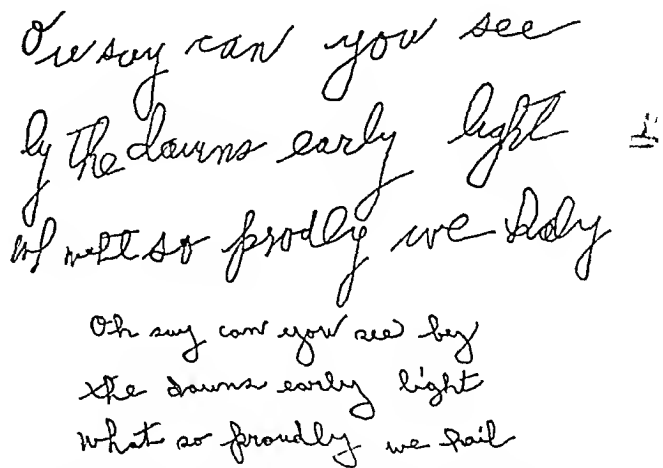 Ou say can you see
by the dawns early light
wh weht so prodly we haly
Oh say can you see by
the dawns early light
What so proudly we hail